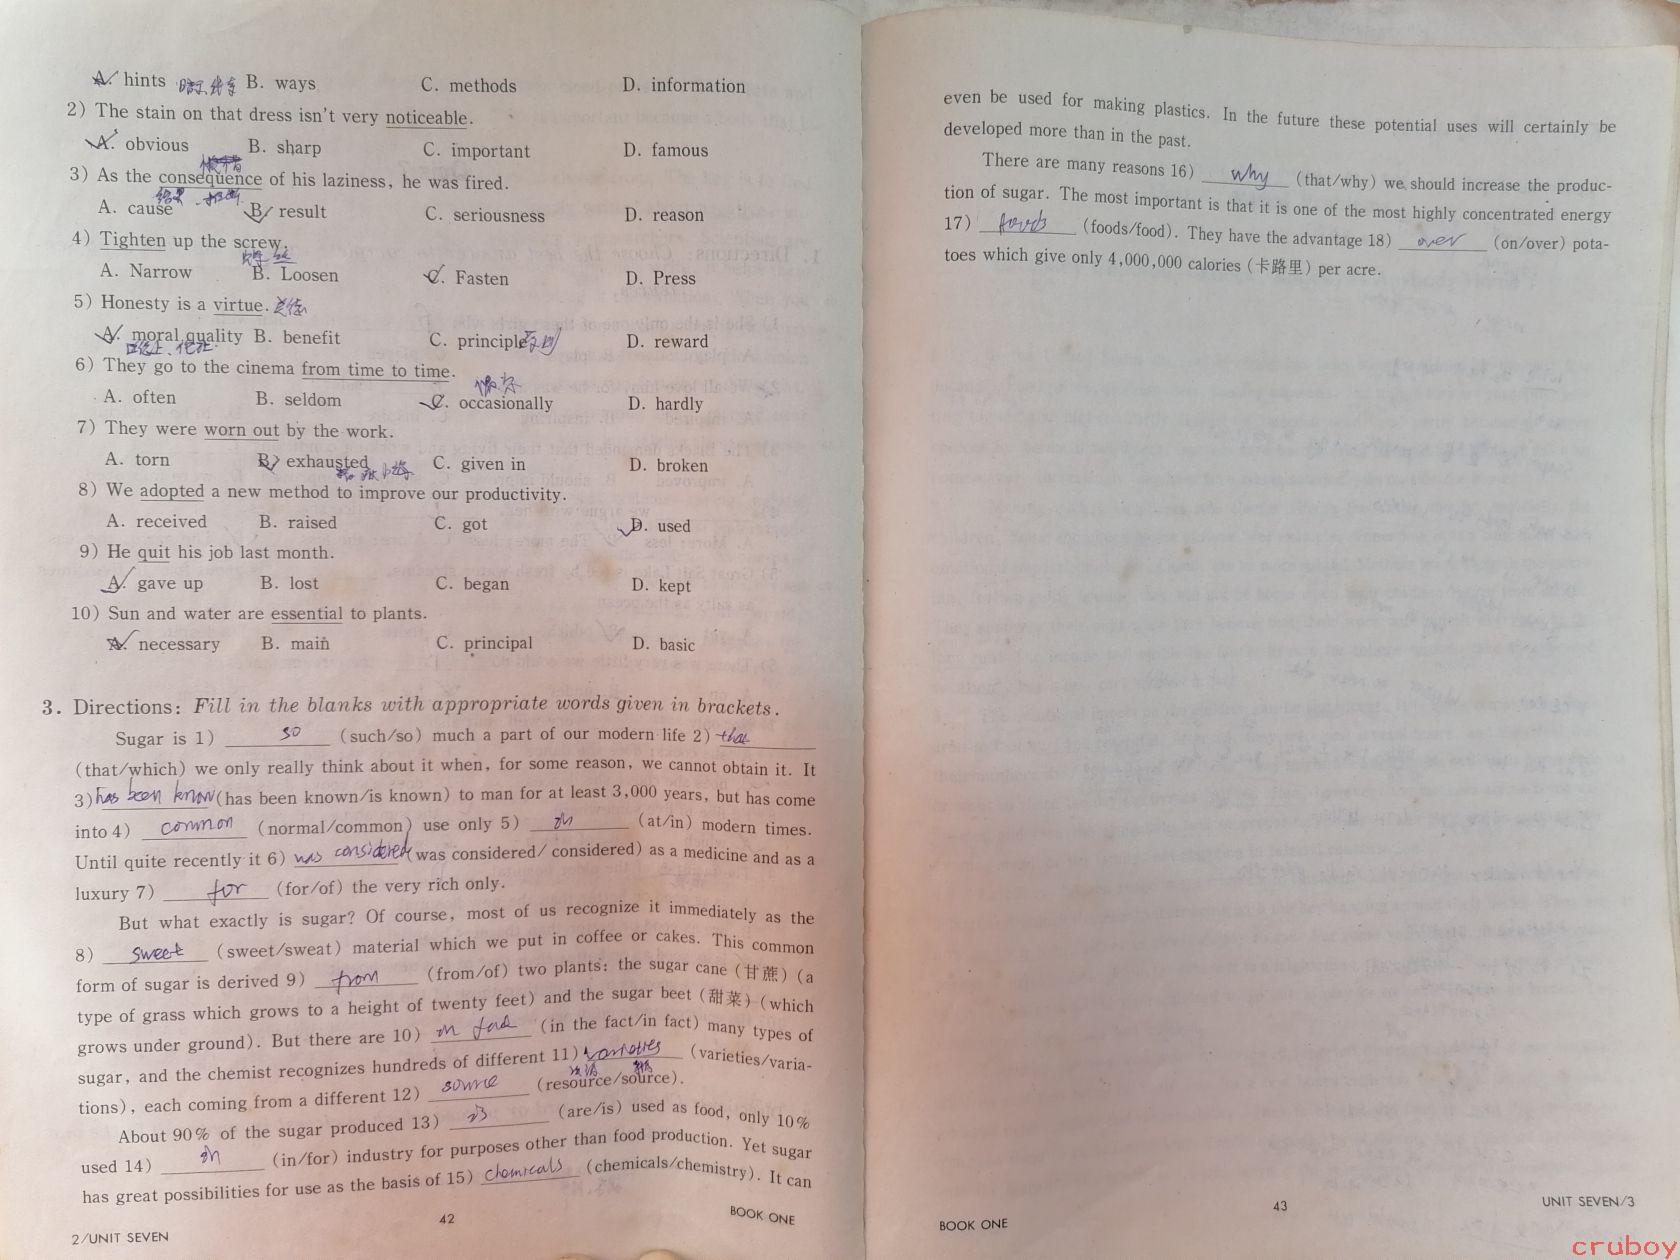 A. hints 暗示 B. ways C. methods D. information
2) The stain on that dress isn't very noticeable.
A. obvious B. sharp C. important D. famous
3) As the consequence of his laziness, he was fired.
结果
A. cause B. result C. seriousness D. reason
4) Tighten up the screw.
螺丝
A. Narrow B. Loosen C. Fasten D. Press
5) Honesty is a virtue. 美德
A. moral quality B. benefit C. principle 原则 D. reward
6) They go to the cinema from time to time.
偶尔
A. often B. seldom C. occasionally D. hardly
7) They were worn out by the work.
A. torn B. exhausted C. given in D. broken
8) We adopted a new method to improve our productivity.
A. received B. raised C. got D. used
9) He quit his job last month.
A. gave up B. lost C. began D. kept
10) Sun and water are essential to plants.
A. necessary B. main C. principal D. basic
3. Directions: Fill in the blanks with appropriate words given in brackets.
Sugar is 1) so (such/so) much a part of our modern life 2) that
(that/which) we only really think about it when, for some reason, we cannot obtain it. It
3) has been know (has been known/is known) to man for at least 3,000 years, but has come
into 4) common (normal/common) use only 5) in (at/in) modern times.
Until quite recently it 6) was considered (was considered/ considered) as a medicine and as a
luxury 7) for (for/of) the very rich only.
But what exactly is sugar? Of course, most of us recognize it immediately as the
8) sweet (sweet/sweat) material which we put in coffee or cakes. This common
form of sugar is derived 9) from (from/of) two plants: the sugar cane (甘蔗) (a
type of grass which grows to a height of twenty feet) and the sugar beet (甜菜) (which
grows under ground). But there are 10) in fact (in the fact/in fact) many types of
sugar, and the chemist recognizes hundreds of different 11) varieties (varieties/varia-
tions), each coming from a different 12) source (resource/source).
About 90% of the sugar produced 13) is (are/is) used as food, only 10%
used 14) in (in/for) industry for purposes other than food production. Yet sugar
has great possibilities for use as the basis of 15) chemicals (chemicals/chemistry). It can
42
BOOK ONE
2/UNIT SEVEN
even be used for making plastics. In the future these potential uses will certainly be
developed more than in the past.
There are many reasons 16) why (that/why) we should increase the produc-
tion of sugar. The most important is that it is one of the most highly concentrated energy
17) foods (foods/food). They have the advantage 18) over (on/over) pota-
toes which give only 4,000,000 calories (卡路里) per acre.
43
UNIT SEVEN/3
BOOK ONE
cruboy